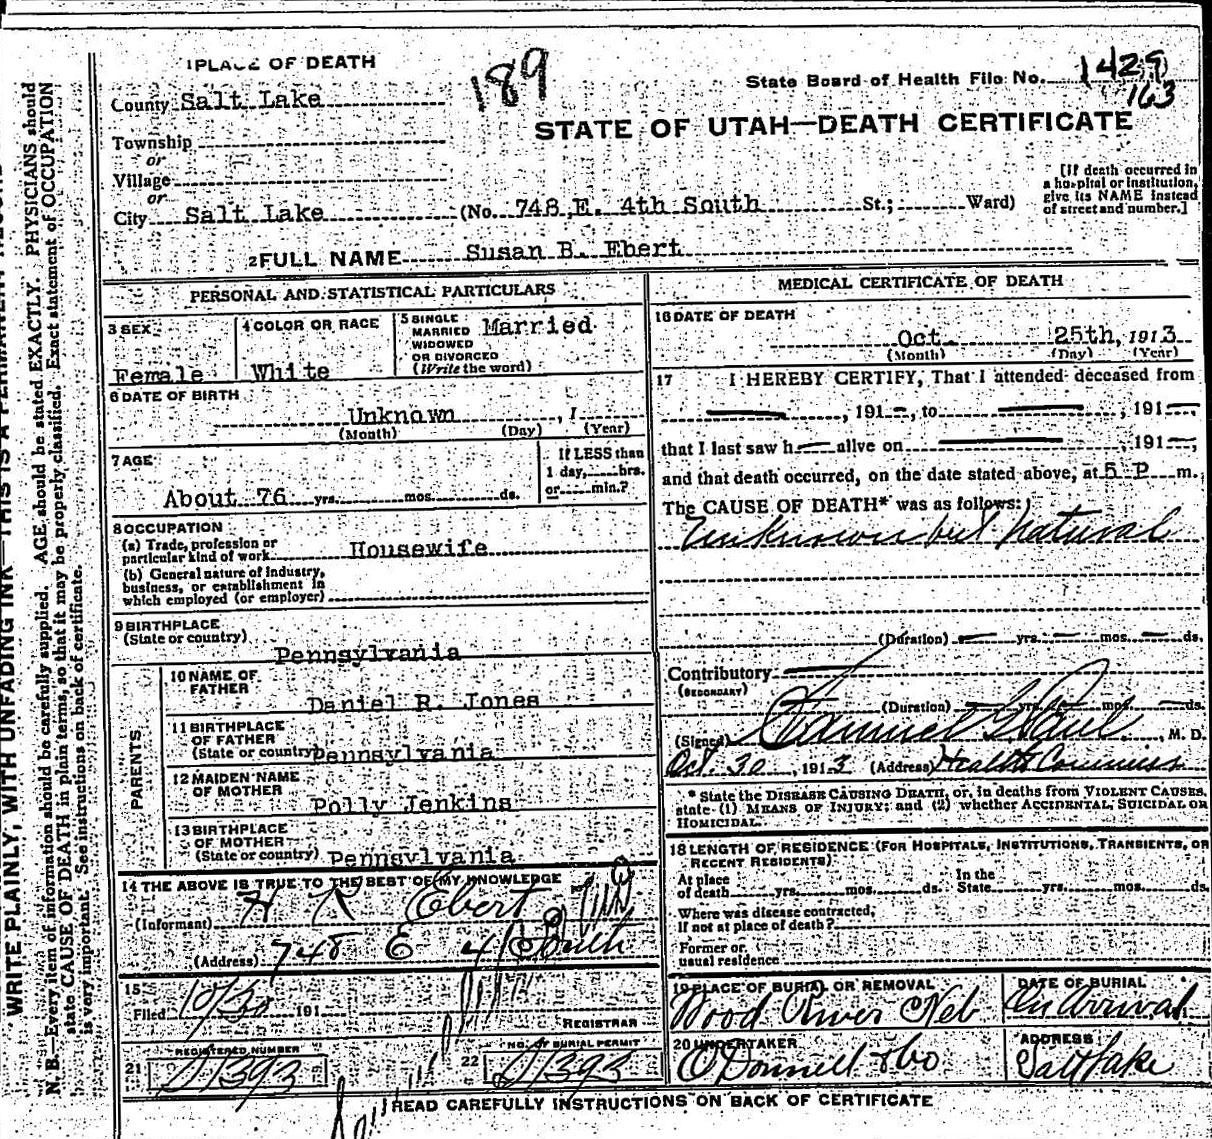 1 PLACE OF DEATH
189
State Board of Health File No. 1429
163
County Salt Lake
STATE OF UTAH—DEATH CERTIFICATE
Township
or
Village
or
City Salt Lake (No. 748 E. 4th South St.; Ward)
[If death occurred in
a hospital or institution,
give its NAME instead
of street and number.]
2 FULL NAME Susan B. Ebert
PERSONAL AND STATISTICAL PARTICULARS
3 SEX
Female
4 COLOR OR RACE
White
5 SINGLE
MARRIED
WIDOWED
OR DIVORCED
(Write the word)
Married
6 DATE OF BIRTH
Unknown , 1
(Month) (Day) (Year)
7 AGE
About 76 yrs. mos. ds.
If LESS than
1 day, hrs.
or min.?
8 OCCUPATION
(a) Trade, profession or
particular kind of work Housewife
(b) General nature of industry,
business, or establishment in
which employed (or employer)
9 BIRTHPLACE
(State or country)
Pennsylvania
PARENTS
10 NAME OF
FATHER
Daniel R. Jones
11 BIRTHPLACE
OF FATHER
(State or country) Pennsylvania
12 MAIDEN NAME
OF MOTHER
Polly Jenkins
13 BIRTHPLACE
OF MOTHER
(State or country) Pennsylvania
14 THE ABOVE IS TRUE TO THE BEST OF MY KNOWLEDGE
(Informant) H R Ebert
(Address) 748 E 4 South
15
Filed 10/30 191
REGISTRAR
21 REGISTERED NUMBER
D1393
22 NO. OF BURIAL PERMIT
D1393
MEDICAL CERTIFICATE OF DEATH
16 DATE OF DEATH
Oct. 25th, 1913
(Month) (Day) (Year)
17 I HEREBY CERTIFY, That I attended deceased from
— , 191 —, to — , 191 —,
that I last saw h — alive on — , 191 —,
and that death occurred, on the date stated above, at 5 P m.
The CAUSE OF DEATH* was as follows:
Unknown but natural
(Duration) — yrs. — mos. — ds.
Contributory —
(SECONDARY)
(Duration) — yrs. — mos. — ds.
(Signed) Samuel G Paul , M. D.
Oct. 30, 1913 (Address) Health Commiss
* State the DISEASE CAUSING DEATH, or, in deaths from VIOLENT CAUSES,
state (1) MEANS OF INJURY; and (2) whether ACCIDENTAL, SUICIDAL OR
HOMICIDAL.
18 LENGTH OF RESIDENCE (FOR HOSPITALS, INSTITUTIONS, TRANSIENTS, OR
RECENT RESIDENTS)
At place
of death yrs. mos. ds.
In the
State yrs. mos. ds.
Where was disease contracted,
if not at place of death?
Former or
usual residence
19 PLACE OF BURIAL OR REMOVAL
Wood River Neb
DATE OF BURIAL
On Arrival
20 UNDERTAKER
O'Donnell & Co
ADDRESS
Salt Lake
READ CAREFULLY INSTRUCTIONS ON BACK OF CERTIFICATE
WRITE PLAINLY, WITH UNFADING INK—THIS IS A PERMANENT RECORD
N. B.—Every item of information should be carefully supplied. AGE should be stated EXACTLY. PHYSICIANS should
state CAUSE OF DEATH in plain terms, so that it may be properly classified. Exact statement of OCCUPATION
is very important. See instructions on back of certificate.